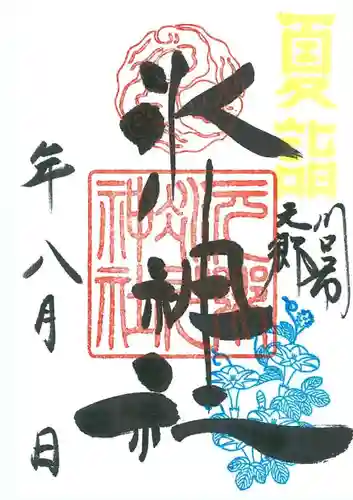 夏詣
川口市
元郷
氷川神社
元郷
氷川
神社
年八月 日